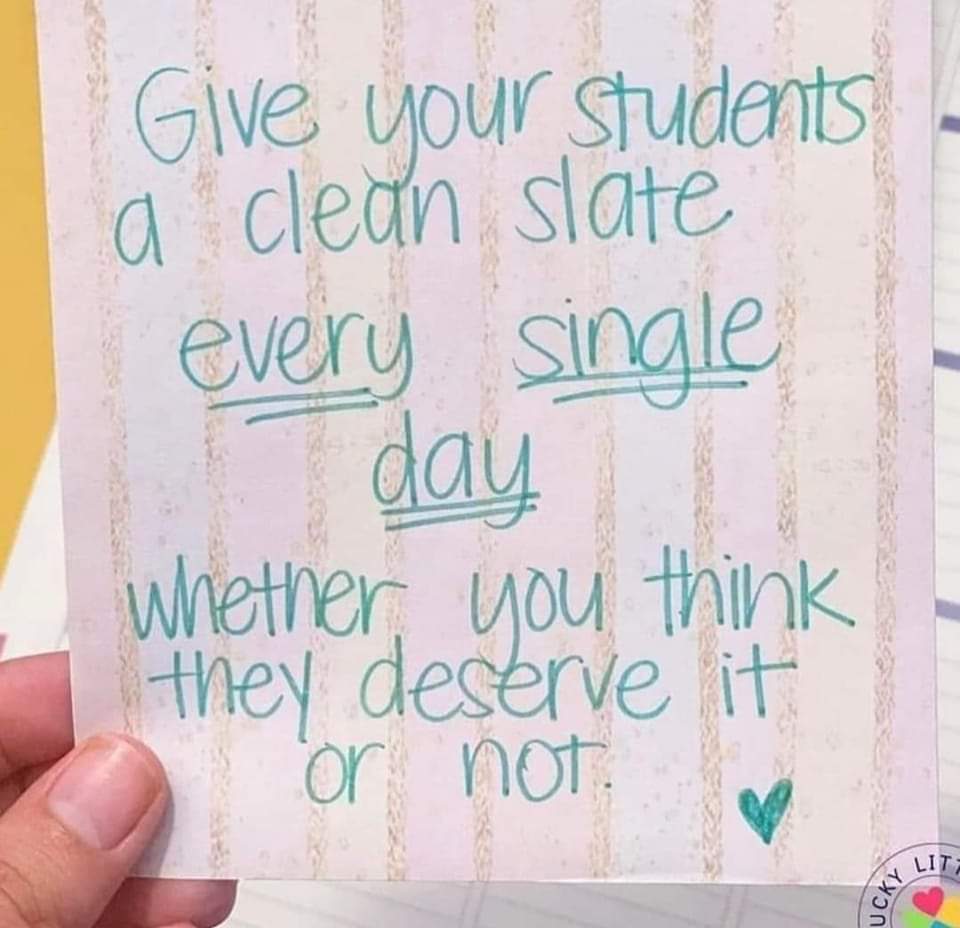 Give your students
a clean slate
every single
day
whether you think
they deserve it
or not.
UCKY LITT